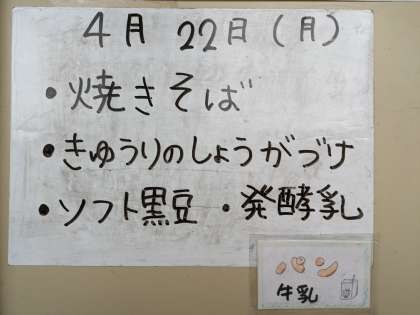 4月 22日(月)
・焼きそば
・きゅうりのしょうがづけ
・ソフト黒豆 ・発酵乳
パン
牛乳